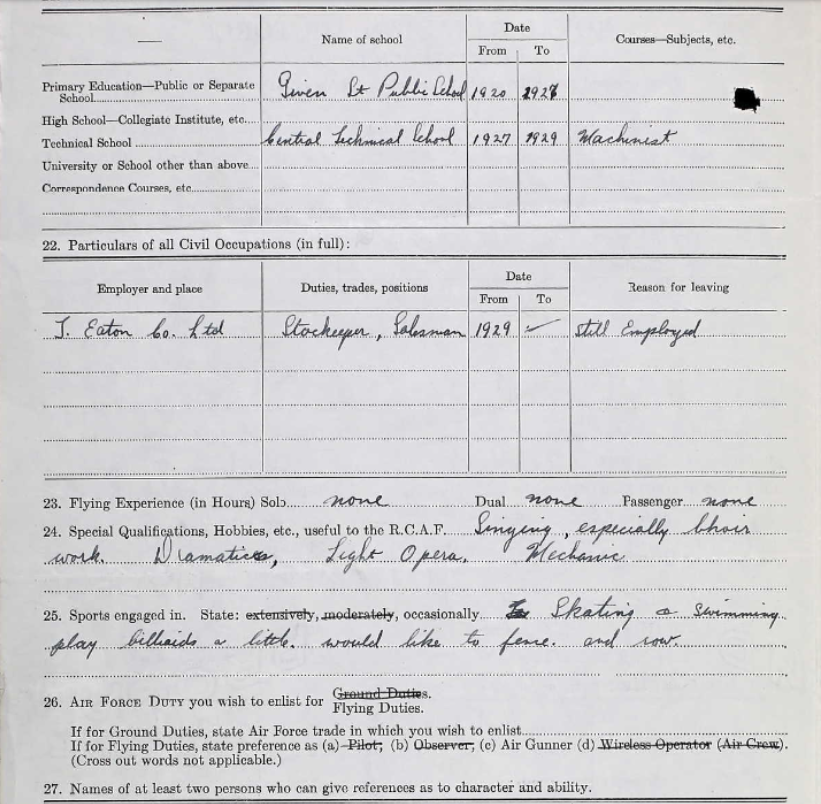 Name of school Date Courses—Subjects, etc.
From To
Primary Education—Public or Separate
School Given St Public School 1920 1927
High School—Collegiate Institute, etc.
Technical School Central Technical School 1927 1929 Machinist
University or School other than above
Correspondence Courses, etc.
22. Particulars of all Civil Occupations (in full):
Employer and place Duties, trades, positions Date Reason for leaving
From To
T. Eaton Co. Ltd Stockeeper, Salesman 1929 ✓ Still Employed
23. Flying Experience (in Hours) Solo none Dual none Passenger none
24. Special Qualifications, Hobbies, etc., useful to the R.C.A.F. Singing, especially Choir
work. Dramatics, Light Opera. Mechanic
25. Sports engaged in. State: extensively, moderately, occasionally Skating & Swimming
play billiards a little. would like to fence. and row.
26. AIR FORCE DUTY you wish to enlist for Ground Duties.
Flying Duties.
If for Ground Duties, state Air Force trade in which you wish to enlist
If for Flying Duties, state preference as (a) Pilot, (b) Observer, (c) Air Gunner (d) Wireless Operator (Air Crew).
(Cross out words not applicable.)
27. Names of at least two persons who can give references as to character and ability.